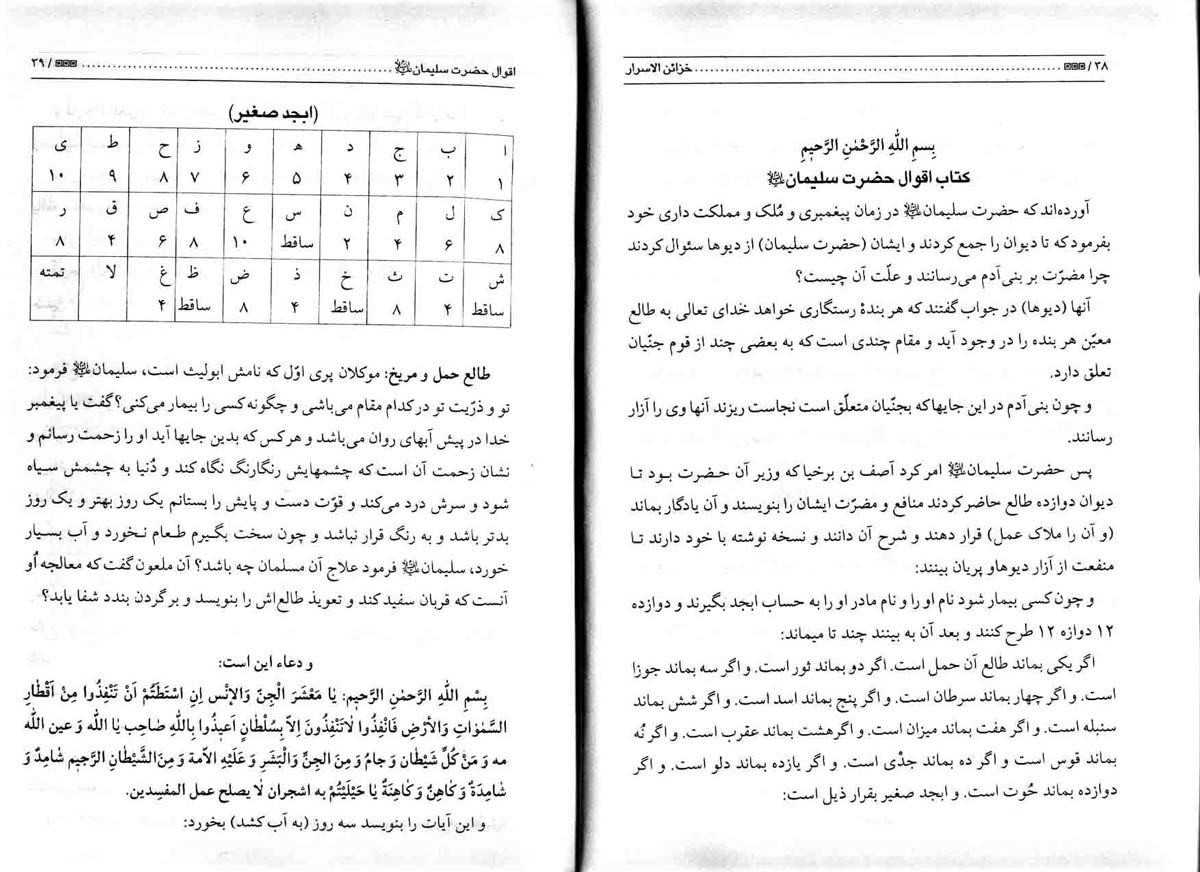 ۳۸ / خزائن الاسرار
بِسمِ اللّٰهِ الرَّحْمٰنِ الرَّحیمِ
کتاب اقوال حضرت سلیمان
آورده‌اند که حضرت سلیمان در زمان پیغمبری و مُلک و مملکت داری خود
بفرمود که تا دیوان را جمع کردند و ایشان (حضرت سلیمان) از دیوها سئوال کردند
چرا مضرّت بر بنی‌آدم می‌رسانند و علّت آن چیست؟
آنها (دیوها) در جواب گفتند که هر بندهٔ رستگاری خواهد خدای تعالی به طالع
معیّن هر بنده را در وجود آید و مقام چندی است که به بعضی چند از قوم جنّیان
تعلق دارد.
و چون بنی‌آدم در این جایها که بجنّیان متعلّق است نجاست ریزند آنها وی را آزار
رسانند.
پس حضرت سلیمان امر کرد آصف بن برخیا که وزیر آن حـضرت بـود تـا
دیوان دوازده طالع حاضر کردند منافع و مضرّت ایشان را بنویسند و آن یادگار بماند
(و آن را ملاک عمل) قرار دهند و شرح آن دانند و نسخه نوشته با خود دارند تـا
منفعت از آزار دیوهاو پریان بینند:
و چون کسی بیمار شود نام او را و نام مادر او را به حساب ابجد بگیرند و دوازده
۱۲ دوازه ۱۲ طرح کنند و بعد آن به بینند چند تا میماند:
اگر یکی بماند طالع آن حمل است. اگر دو بماند ثور است. و اگر سه بماند جوزا
است. و اگر چهار بماند سرطان است. و اگر پنج بماند اسد است. و اگر شش بماند
سنبله است. و اگر هفت بماند میزان است. و اگر هشت بماند عقرب است. و اگر نُه
بماند قوس است و اگر ده بماند جدْی است. و اگر یازده بماند دلو است. و اگر
دوازده بماند حُوت است. و ابجد صغیر بقرار ذیل است:
اقوال حضرت سلیمان / ۳۹
(ابجد صغیر)
ا ب ج د ه و ز ح ط ی
۱ ۲ ۳ ۴ ۵ ۶ ۷ ۸ ۹ ۱۰
ک ل م ن س ع ف ص ق ر
۸ ۶ ۴ ۲ ساقط ۱۰ ۸ ۶ ۴ ۸
ش ت ث خ ذ ض ظ غ لا تمته
ساقط ۴ ۸ ساقط ۴ ۸ ساقط ۴
طالع حمل و مریخ: موکلان پری اوّل که نامش ابولیث است، سلیمان فرمود:
تو و ذرّیت تو در کدام مقام می‌باشی و چگونه کسی را بیمار می‌کنی؟ گفت یا پیغمبر
خدا در پیش آبهای روان می‌باشد و هر کس که بدین جایها آید او را زحمت رسانم و
نشان زحمت آن است که چشمهایش رنگارنگ نگاه کند و دُنیا به چشمش سیاه
شود و سرش درد می‌کند و قوّت دست و پایش را بستانم یک روز بهتر و یک روز
بدتر باشد و به رنگ قرار نباشد و چون سخت بگیرم طعـام نـخورد و آب بسیار
خورد، سلیمان فرمود علاج آن مسلمان چه باشد؟ آن ملعون گفت که معالجه اُو
آنست که قربان سفید کند و تعویذ طالع‌اش را بنویسد و بر گردن بندد شفا یابد؟
و دعاء این است:
بِسْمِ اللّٰهِ الرَّحمٰنِ الرَّحیم: یٰا مَعْشَرَ الْجِنّ وَالإنْس اِنِ اسْتَطَتُمْ اَنْ تَنْفِذُوا مِنْ اَقْطٰارِ
السَّمٰوٰاتِ وَالأرْضِ فَانْفِذُوا لٰاتَنْفِذُونَ اِلاّ بِسُلْطٰانٍ اَعیذُوا بِاللّٰهِ صٰاحِب یٰا اللّٰه وَ عین اللّٰه
مه وَ مَنْ کُلّ شَیْطٰان وَ جامُ وَ مِنَ الْجِنِّ وَالْبَشَرِ وَ عَلَیْهِ الاٰمة وَ مِنَ الشَّیْطٰانِ الرَّجیم شٰامِدٌ وَ
شٰامِدَةٌ وَ کٰاهِنٌ وَ کٰاهِنَةٌ یٰا حَیْلَیْتُمْ به اشجران لٰا یصلح عمل المفسِدین.
و این آیات را بنویسد سه روز (به آب کشد) بخورد: